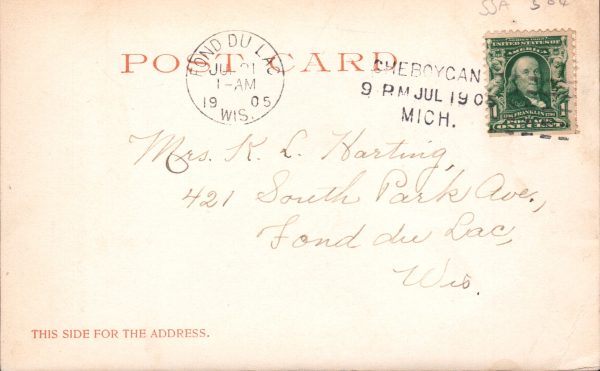 SSA 564
POST CARD
FOND DU LAC
JUL 21
1-AM
1905
WIS.
CHEBOYGAN
9 PM JUL 19 0
MICH.
SERIES 1902
UNITED STATES OF
AMERICA
1 POSTAGE 1
ONE CENT
Mrs. K. L. Harting,
421 South Park Ave.,
Fond du Lac,
Wis.
THIS SIDE FOR THE ADDRESS.